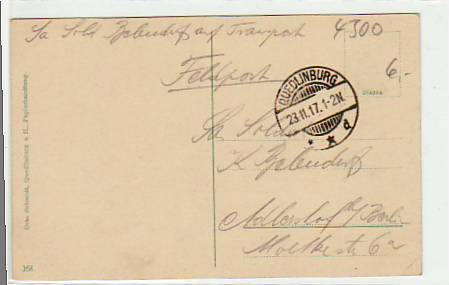 Sa Sold Zabendorf auf Transport
4300
6.-
Feldpost
Marke
QUEDLINBURG
23.11.17.1-2N.
* * d
Sa Sold
K Zabendorf
Adlershof b/Berlin
Moltkestr 6a
Quedlinburg a. H., Papierhandlung.
364